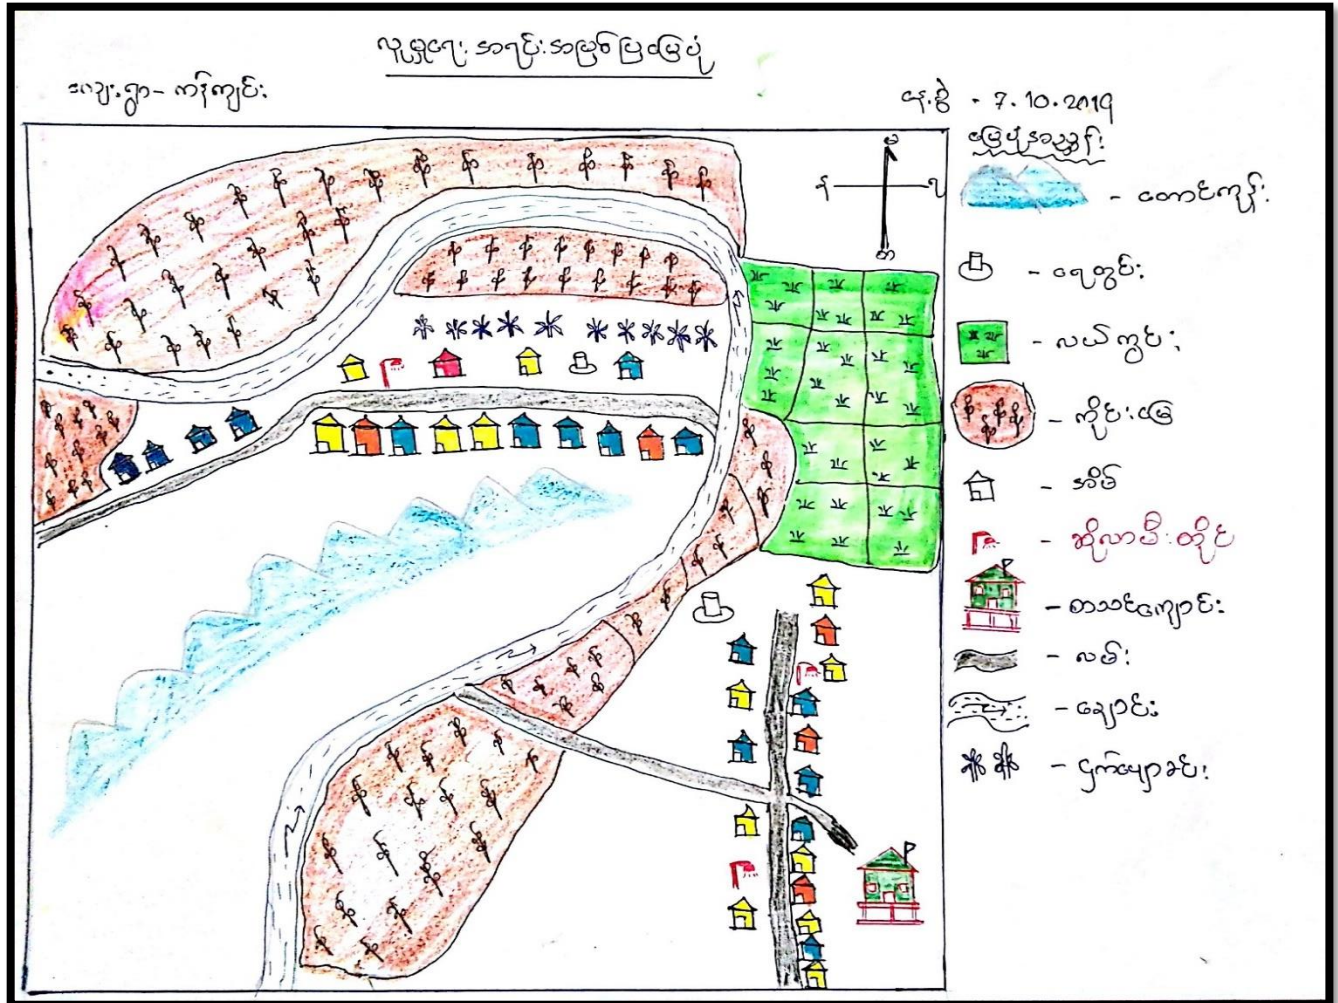 လူမှုရေး အရင်းအမြစ်ပြမြေပုံ
ကျေးရွာ - ကန်ကျင်း
နေ့စွဲ - 7.10.2019
မြေပုံအညွှန်း
မ
န
လ
တ
- တောင်ကုန်း
- ရေတွင်း
- လယ်ကွင်း
- ကိုင်းမြေ
- အိမ်
- ဆိုလာမီးတိုင်
- စာသင်ကျောင်း
- လမ်း
- ချောင်း
- ငှက်ပျောခင်း